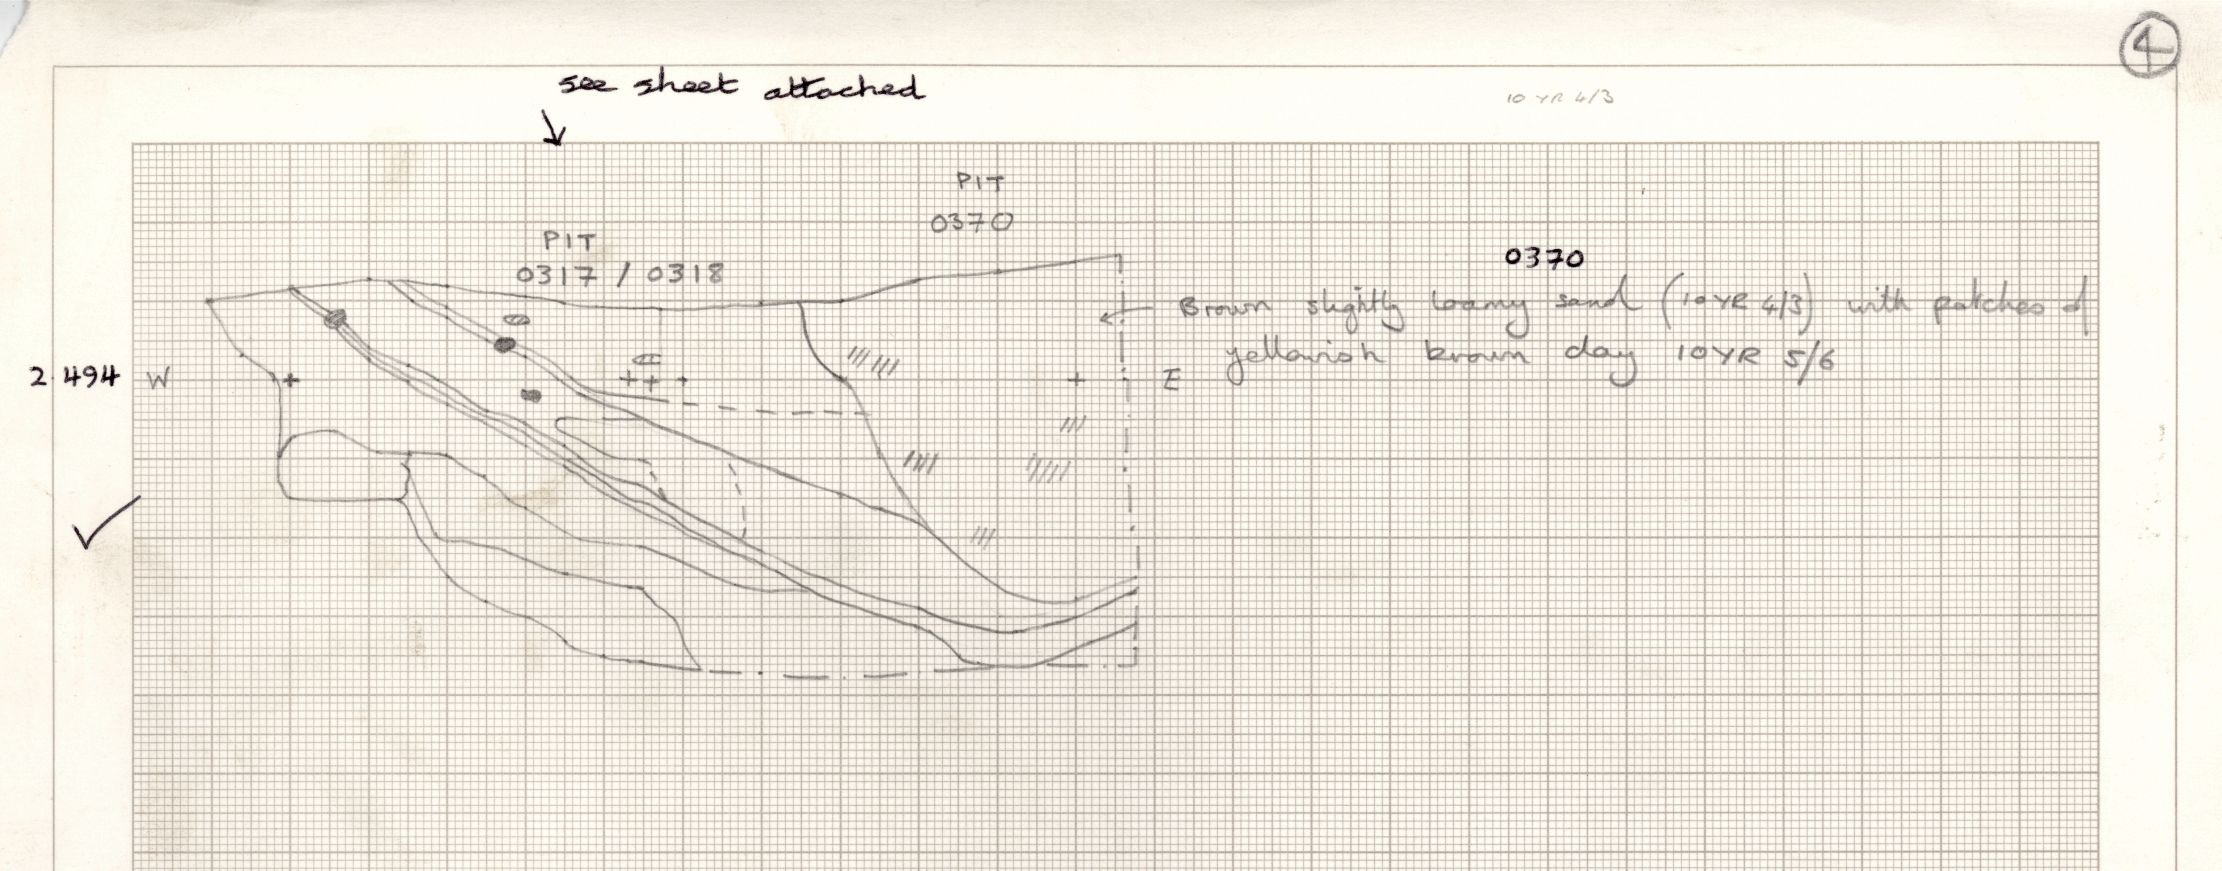 4
see sheet attached
10 YR 4/3
PIT
0370
PIT
0317 / 0318
0370
Brown slightly loamy sand (10YR 4/3) with patches of
yellowish brown clay 10YR 5/6
2.494 W
E